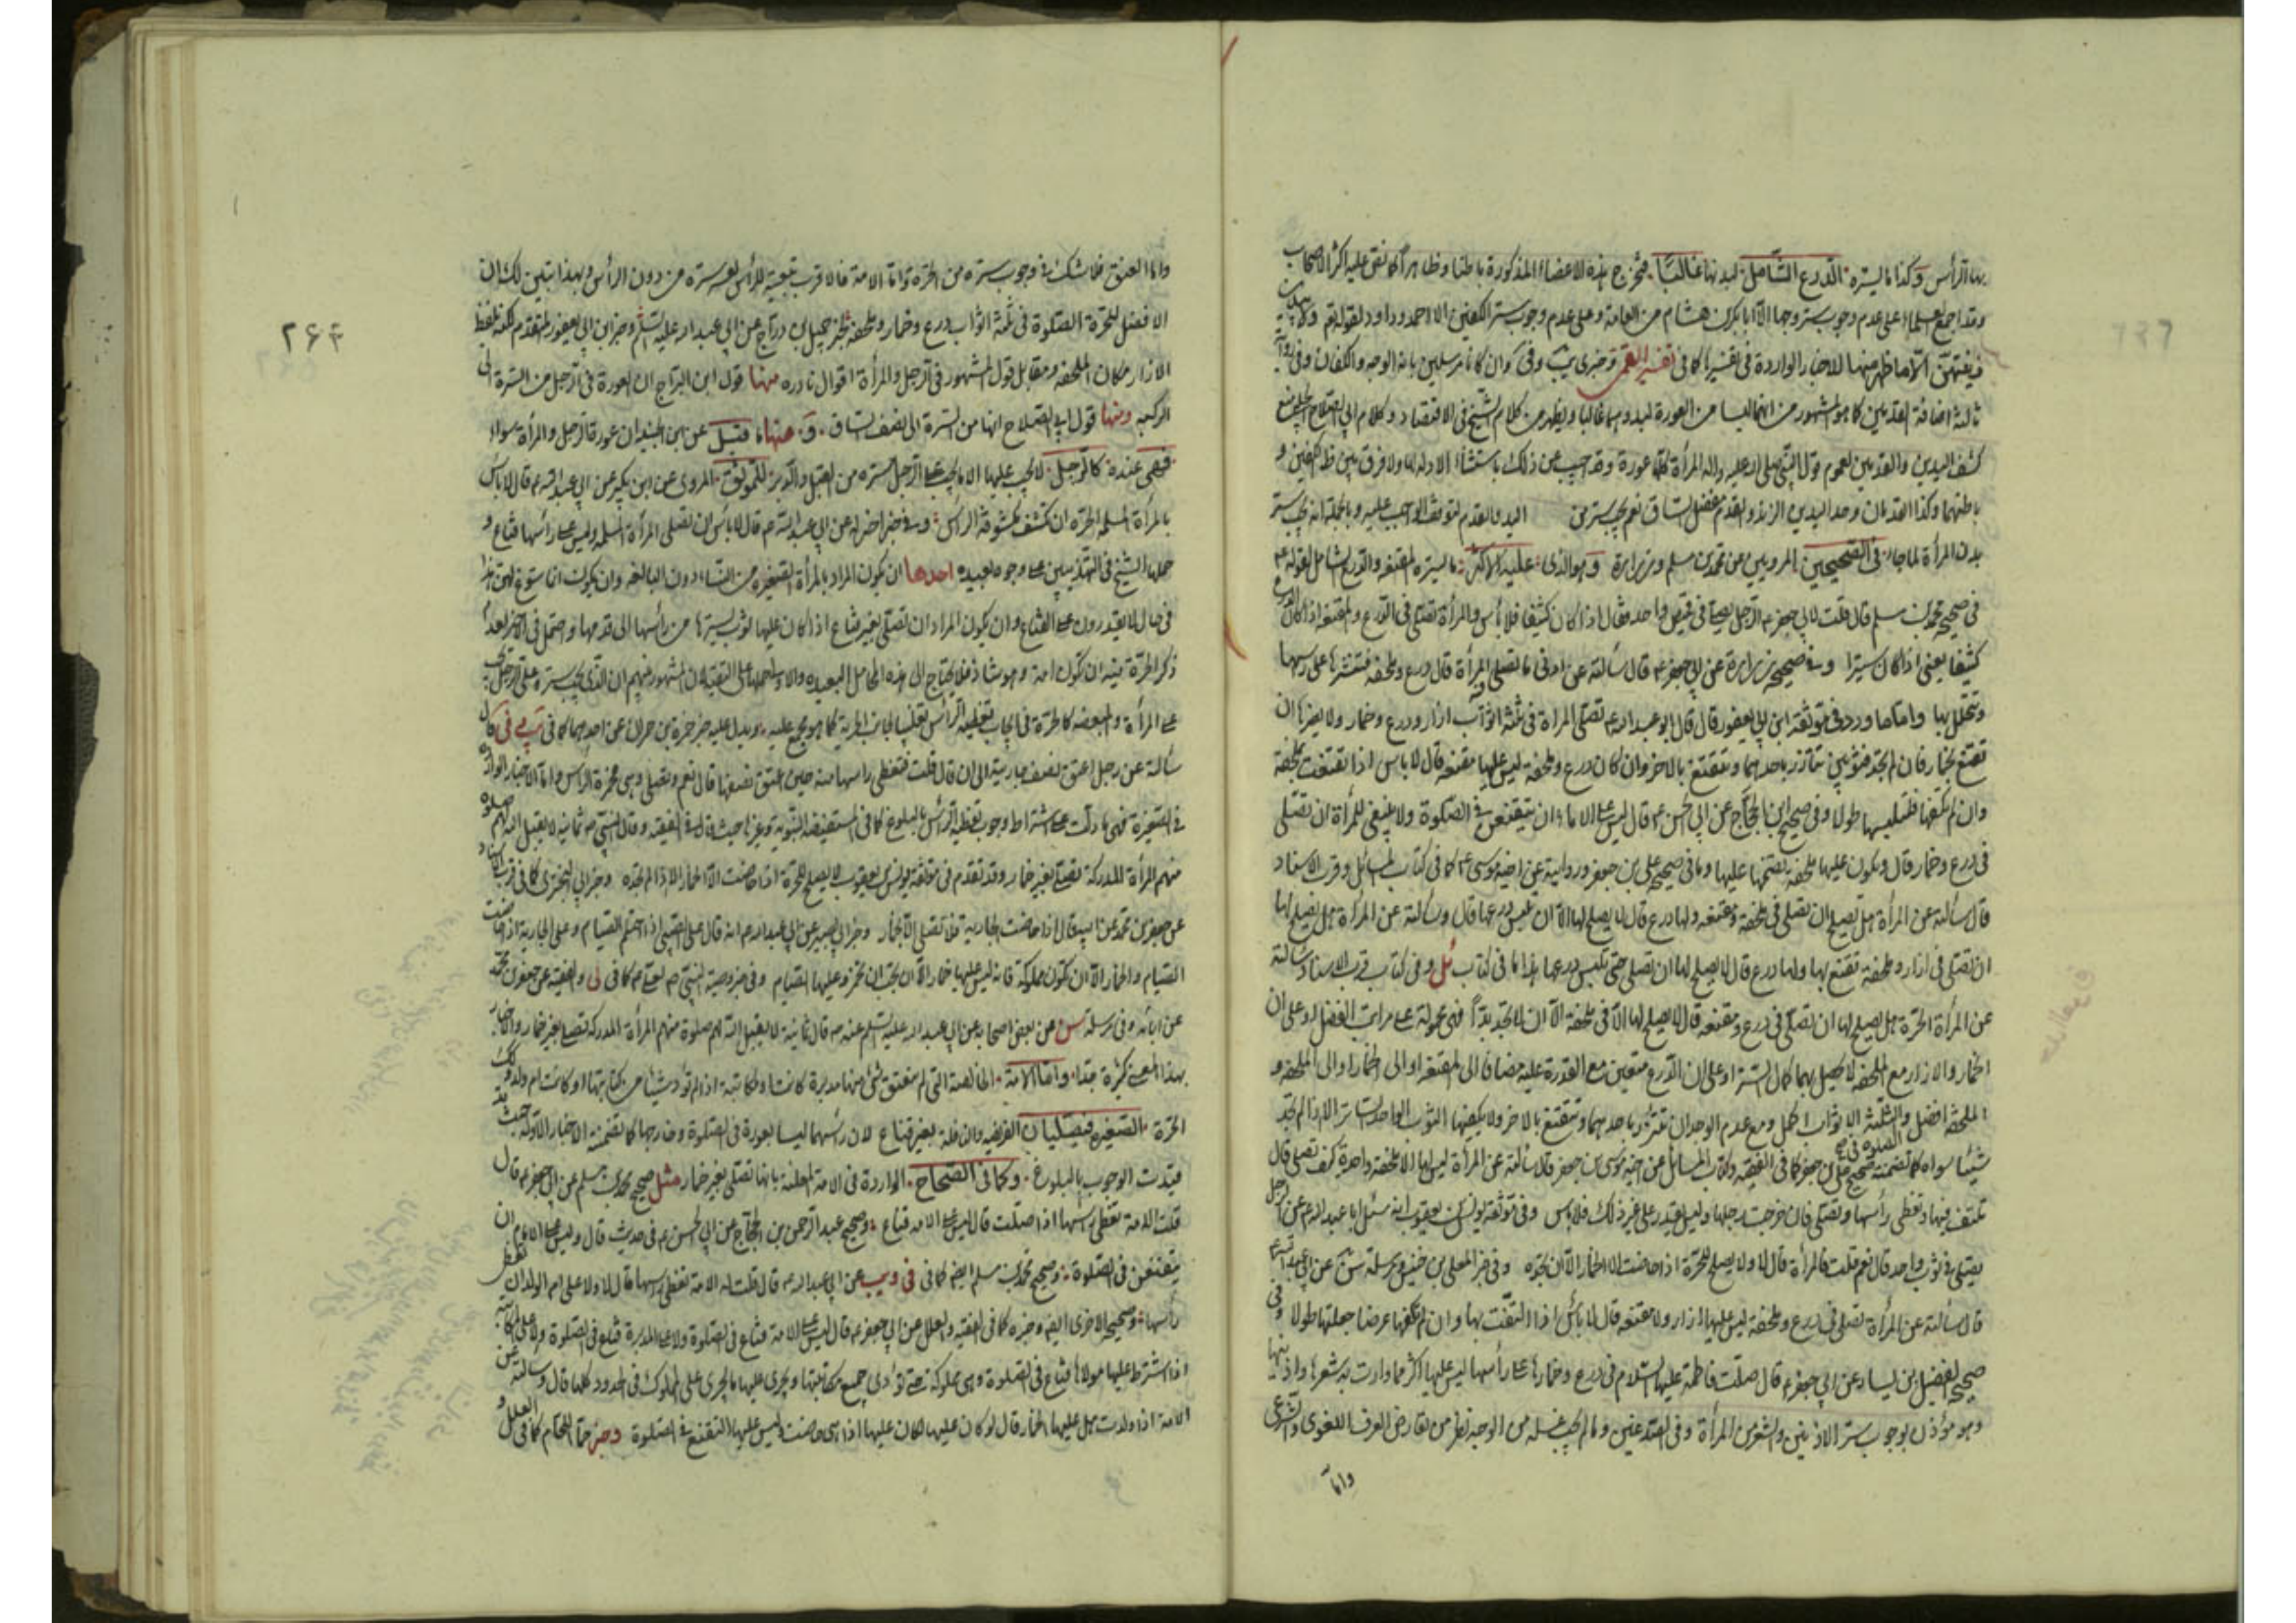 بها الرأس وكذا ما يستره الدرع الشامل لبدنها غالبا فتخرج هذه الاعضاء المذكورة باطنا وظاهرا كما نص عليه اكثر الاصحاب
وقد اجمع علماء على عدم وجوب ستر وجهها الا ابا بكر بن هشام من العامة وعلى عدم وجوب ستر الكفين الا احمد وداود لقوله تعالى ولا يبدين
زينتهن الا ما ظهر منها للاخبار الواردة في تفسيرها كما في تفسير القمي وخبري وفي وان كانا مرسلين بانه الوجه والكفان وفي
ثالثة اضافة القدمين كما هو المشهور من انهما ليسا من العورة لبدوهما غالبا ويظهر من كلام الشيخ في الاقتصاد وكلام ابي الصلاح المنع
كشف اليدين والقدمين لعموم قول النبي صلى الله عليه واله المرأة كلها عورة وقد اجيب عن ذلك باستثناء الادلة لها ولا فرق بين ظهر الكفين و
باطنهما وكذا القدمان وحد اليدين الزند والقدم مفصل الساق نعم يجب ستر من اليد والقدم لتوقف الواجب عليه وبالجملة انه يجب ستر
بدن المرأة لما جاء في الصحيحين المرويين عن محمد بن مسلم وزرارة وهو الذي عليه الاكثر ما يستره المقنعة والدرع الشامل لقوله ع
في صحيح محمد بن مسلم قال قلت لابي جعفر ع الرجل يصلي في قميص واحد فقال اذا كان كثيفا فلا بأس والمرأة تصلي في الدرع والمقنعة اذا كان الدرع
كثيفا يعني اذا كان ستيرا وفي صحيح زرارة عن ابي جعفر ع قال سألته عن ادنى ما تصلي المرأة قال درع وملحفة فتنشرها على رأسها
وتجلل بها واما ما ورد في موثقة ابن ابي يعفور قال قال ابو عبد الله ع تصلي المرأة في ثلثة اثواب ازار ودرع وخمار ولا يضرها ان
تقنع بخمار فان لم تجد فثوبين تتازر باحدهما وتتقنع بالاخر وان كان درع وملحفة ليس عليها مقنعة قال لا باس اذا تقنعت بملحفة
وان لم تكفها فتلبسها طولا وفي صحيح ابن الحجاج عن ابي الحسن ع قال ليس على الاماء ان يتقنعن في الصلوة ولا ينبغي للمرأة ان تصلي
في درع وخمار قال ويكون عليها ملحفة تضمها عليها وما في صحيح علي بن جعفر وروايته عن اخيه موسى ع كما في كتاب المسائل وقرب الاسناد
قال سألته عن المرأة هل يصلح ان تصلي في ملحفة ومقنعة ولها درع قال لا يصلح لها الا ان تلبس درعها قال وسألته عن المرأة هل يصلح لها
ان تصلي في ازار وملحفة تقنع بها ولها درع قال لا يصلح لها ان تصلي حتى تلبس درعها هذا ما في كتاب ئل وفي كتاب قرب الاسناد وسألته
عن المرأة الحرة هل يصلح لها ان تصلي في درع ومقنعة قال لا يصلح لها الا في ملحفة الا ان لا تجد بدا فهي محمولة على مراتب الفضل او على ان
الخمار والازار مع الملحفة لا يحصل بهما كمال الستر او على ان الدرع متعين مع القدرة عليه مضافا الى المقنعة او الى الخمار او الى الملحفة و
الملحفة افضل والثلثة الاثواب اكمل ومع عدم الوجدان تتزر باحدهما وتتقنع بالاخر ولا يكفيها الثوب الواحد الساتر الا اذا لم تجد
شيئا سواه كما تضمنه صحيح علي بن جعفر كما في الفقيه وكتاب المسائل عن اخيه موسى بن جعفر قال سألته عن المرأة ليس لها الا ملحفة واحدة كيف تصلي قال
تلتف فيها وتغطي رأسها وتصلي فان خرجت رجلها وليس تقدر على غير ذلك فلا باس وفي موثقة يونس بن يعقوب انه سئل ابا عبد الله ع عن الرجل
يصلي في ثوب واحد قال نعم قلت فالمرأة قال لا ولا يصلح للحرة اذا حاضت الا الخمار الا ان لا تجده وفي خبر المعلى بن خنيس ومرسلة عن ابي عبد الله
قال سألته عن المرأة تصلي في درع وملحفة ليس عليها ازار ولا مقنعة قال لا بأس اذا التفت بها وان لم تكفها عرضا جعلتها طولا وفي
صحيح الفضيل بن يسار عن ابي جعفر ع قال صلت فاطمة عليها السلام في درع وخمارها على رأسها ليس عليها اكثر مما وارت به شعرها واذنيها
وهو مؤذن بوجوب ستر الاذنين والشعر من المرأة وفي الصدغين وما لم يجب غسله من الوجه نظر من تعارض العرف اللغوي والشرعي
واما
واما العنق فلا شك في وجوب ستره من الحرة واما الامة فالاقرب تبعيته للرأس لعسر ستره من دون الرأس وبهذا تبين لك ان
الافضل للحرة الصلوة في ثلثة اثواب درع وخمار وملحفة لخبر جميل بن دراج عن ابي عبد الله عليه السلم وخبر ابن ابي يعفور المتقدم لكنه بلفظ
الازار مكان الملحفة ومقابل قول المشهور في الرجل والمرأة اقوال نادره منها قول ابن البراج ان العورة في الرجل من السرة الى
الركبه ومنها قول ابي الصلاح انها من السرة الى نصف الساق و منها ما قيل عن ابن الجنيد ان عورة الرجل والمرأة سواء
فهي عنده كالرجل لا يجب عليها الا ما يجب على الرجل ستره من القبل والدبر للموثق المروي عن ابن بكير عن ابي عبد الله ع قال لا بأس
بالمرأة المسلمة الحرة ان تكشف مكشوفة الرأس وفي خبر اخر له عن ابي عبد الله ع قال لا بأس ان تصلي المرأة المسلمة وليس على رأسها قناع و
حملها الشيخ في التهذيبين على وجوه بعيده احدها ان يكون المراد بالمرأة الصغيرة من النساء دون البالغة وان يكون انما سوغ لهن هذا
في حال لا يقدرون على القناع وان يكون المراد ان تصلي بغير قناع اذا كان عليها ثوب يسترها من رأسها الى قدمها واحتمل في الاخر لعدم
ذكر الحرة فيه ان تكون امة وهو شاذ فلا يحتاج الى هذه المحامل البعيده والاولى حملها على التقية لان المشهور منهم ان الذي يجب ستره على الرجل يجب
على المرأة والمبعضه كالحرة في ايجاب تغطية الرأس تغليبا لجانب الحرية كما هو مجمع عليه ويدل عليه خبر حمزة بن حمران عن احدهما كما في يب في قال
سألته عن رجل اعتق نصف جارية الى ان قال قلت فتغطي راسها منه حين اعتق نصفها قال نعم وتصلي وهي مخمرة الراس واما الاخبار الواردة
في الصغيرة فهي ما دلت على اشتراط وجوب تغطية الرأس بالبلوغ كما في المستفيضة النبوية وغيرها حيث قال في الفقيه وقال النبي ص ثمانية لا يقبل الله لهم صلوة
منهم المرأة المدركة تصلي بغير خمار وقد تقدم في موثقة يونس بن يعقوب لا يصلح للحرة اذا حاضت الا الخمار الا ان لا تجده وخبر ابي البختري كما في قرب الاسناد
عن جعفر بن محمد عن ابيه قال اذا حاضت الجارية فلا تصلي الا بخمار وخبر ابي بصير عن ابي عبد الله ع انه قال على الصبي اذا احتلم الصيام وعلى الجارية اذا حاضت
الصيام والخمار الا ان تكون مملوكة فانه ليس عليها خمار الا ان تحب ان تختمر وعليها الصيام وفي خبر وصية النبي ص لعلي ع كما في لى والفقيه عن جعفر بن محمد
عن ابائه وفي مرسلة سن عن بعض اصحابه عن ابي عبد الله عليه السلم عنه ص قال ثمانية لا يقبل الله لهم صلوة منهم المرأة المدركه تصلي بغير خمار والاخبار
بهذا المعنى كثيرة جدا واما الامة الخالصة التي لم ينعتق شيء منها مدبرة كانت او مكاتبة اذا لم تؤد شيئا من كتابتها او كانت ام ولد وكذا
الحرة الصغيرة فيصليان الفريضة والنافلة بغير قناع لان رأسهما ليسا بعورة في الصلوة وخارجها كما تضمنته الاخبار الاولة حيث قد
قيدت الوجوب بالبلوغ وكما في الصحاح الواردة في الامة المعلنة بانها تصلي بغير خمار مثل صحيح محمد بن مسلم عن ابي جعفر ع قال
قلت الامة تغطي رأسها اذا صلت قال ليس على الامة قناع وصحيح عبد الرحمن بن الحجاج عن ابي الحسن ع في حديث قال وليس على الاماء ان
يتقنعن في الصلوة وصحيح محمد بن مسلم ايضا كما في في ويب عن ابي عبد الله ع قال قلت له الامة تغطي رأسها قال لا ولا على ام الولد ان تغطي
رأسها وصحيحه الاخرى ايضا وخبره كما في الفقيه والعلل عن ابي جعفر ع قال ليس على الامة قناع في الصلوة ولا على المدبرة قناع في الصلوة ولا على المكاتبة
اذا اشترط عليها مولاها قناع في الصلوة وهي مملوكة حتى تؤدي جميع مكاتبتها ويجري عليها ما يجري على المملوك في الحدود كلها قال وسألته عن
الامة اذا ولدت هل عليها الخمار قال لو كان عليها لكان عليها اذا هي حاضت وليس عليها التقنع في الصلوة وخبر حماد اللحام كما في العلل
۲۶۴